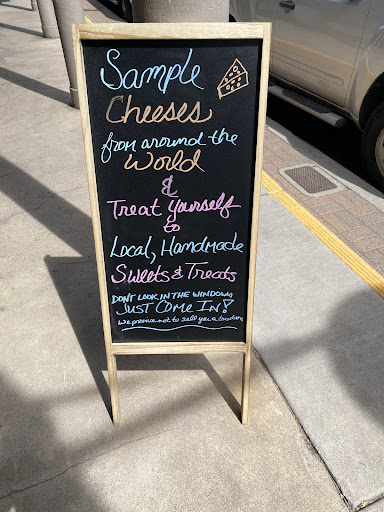 Sample
Cheeses
from around the
World
&
Treat Yourself
to
Local, Handmade
Sweets & Treats
DON'T LOOK IN THE WINDOW,
JUST COME IN!
We promise not to sell you a timeshare